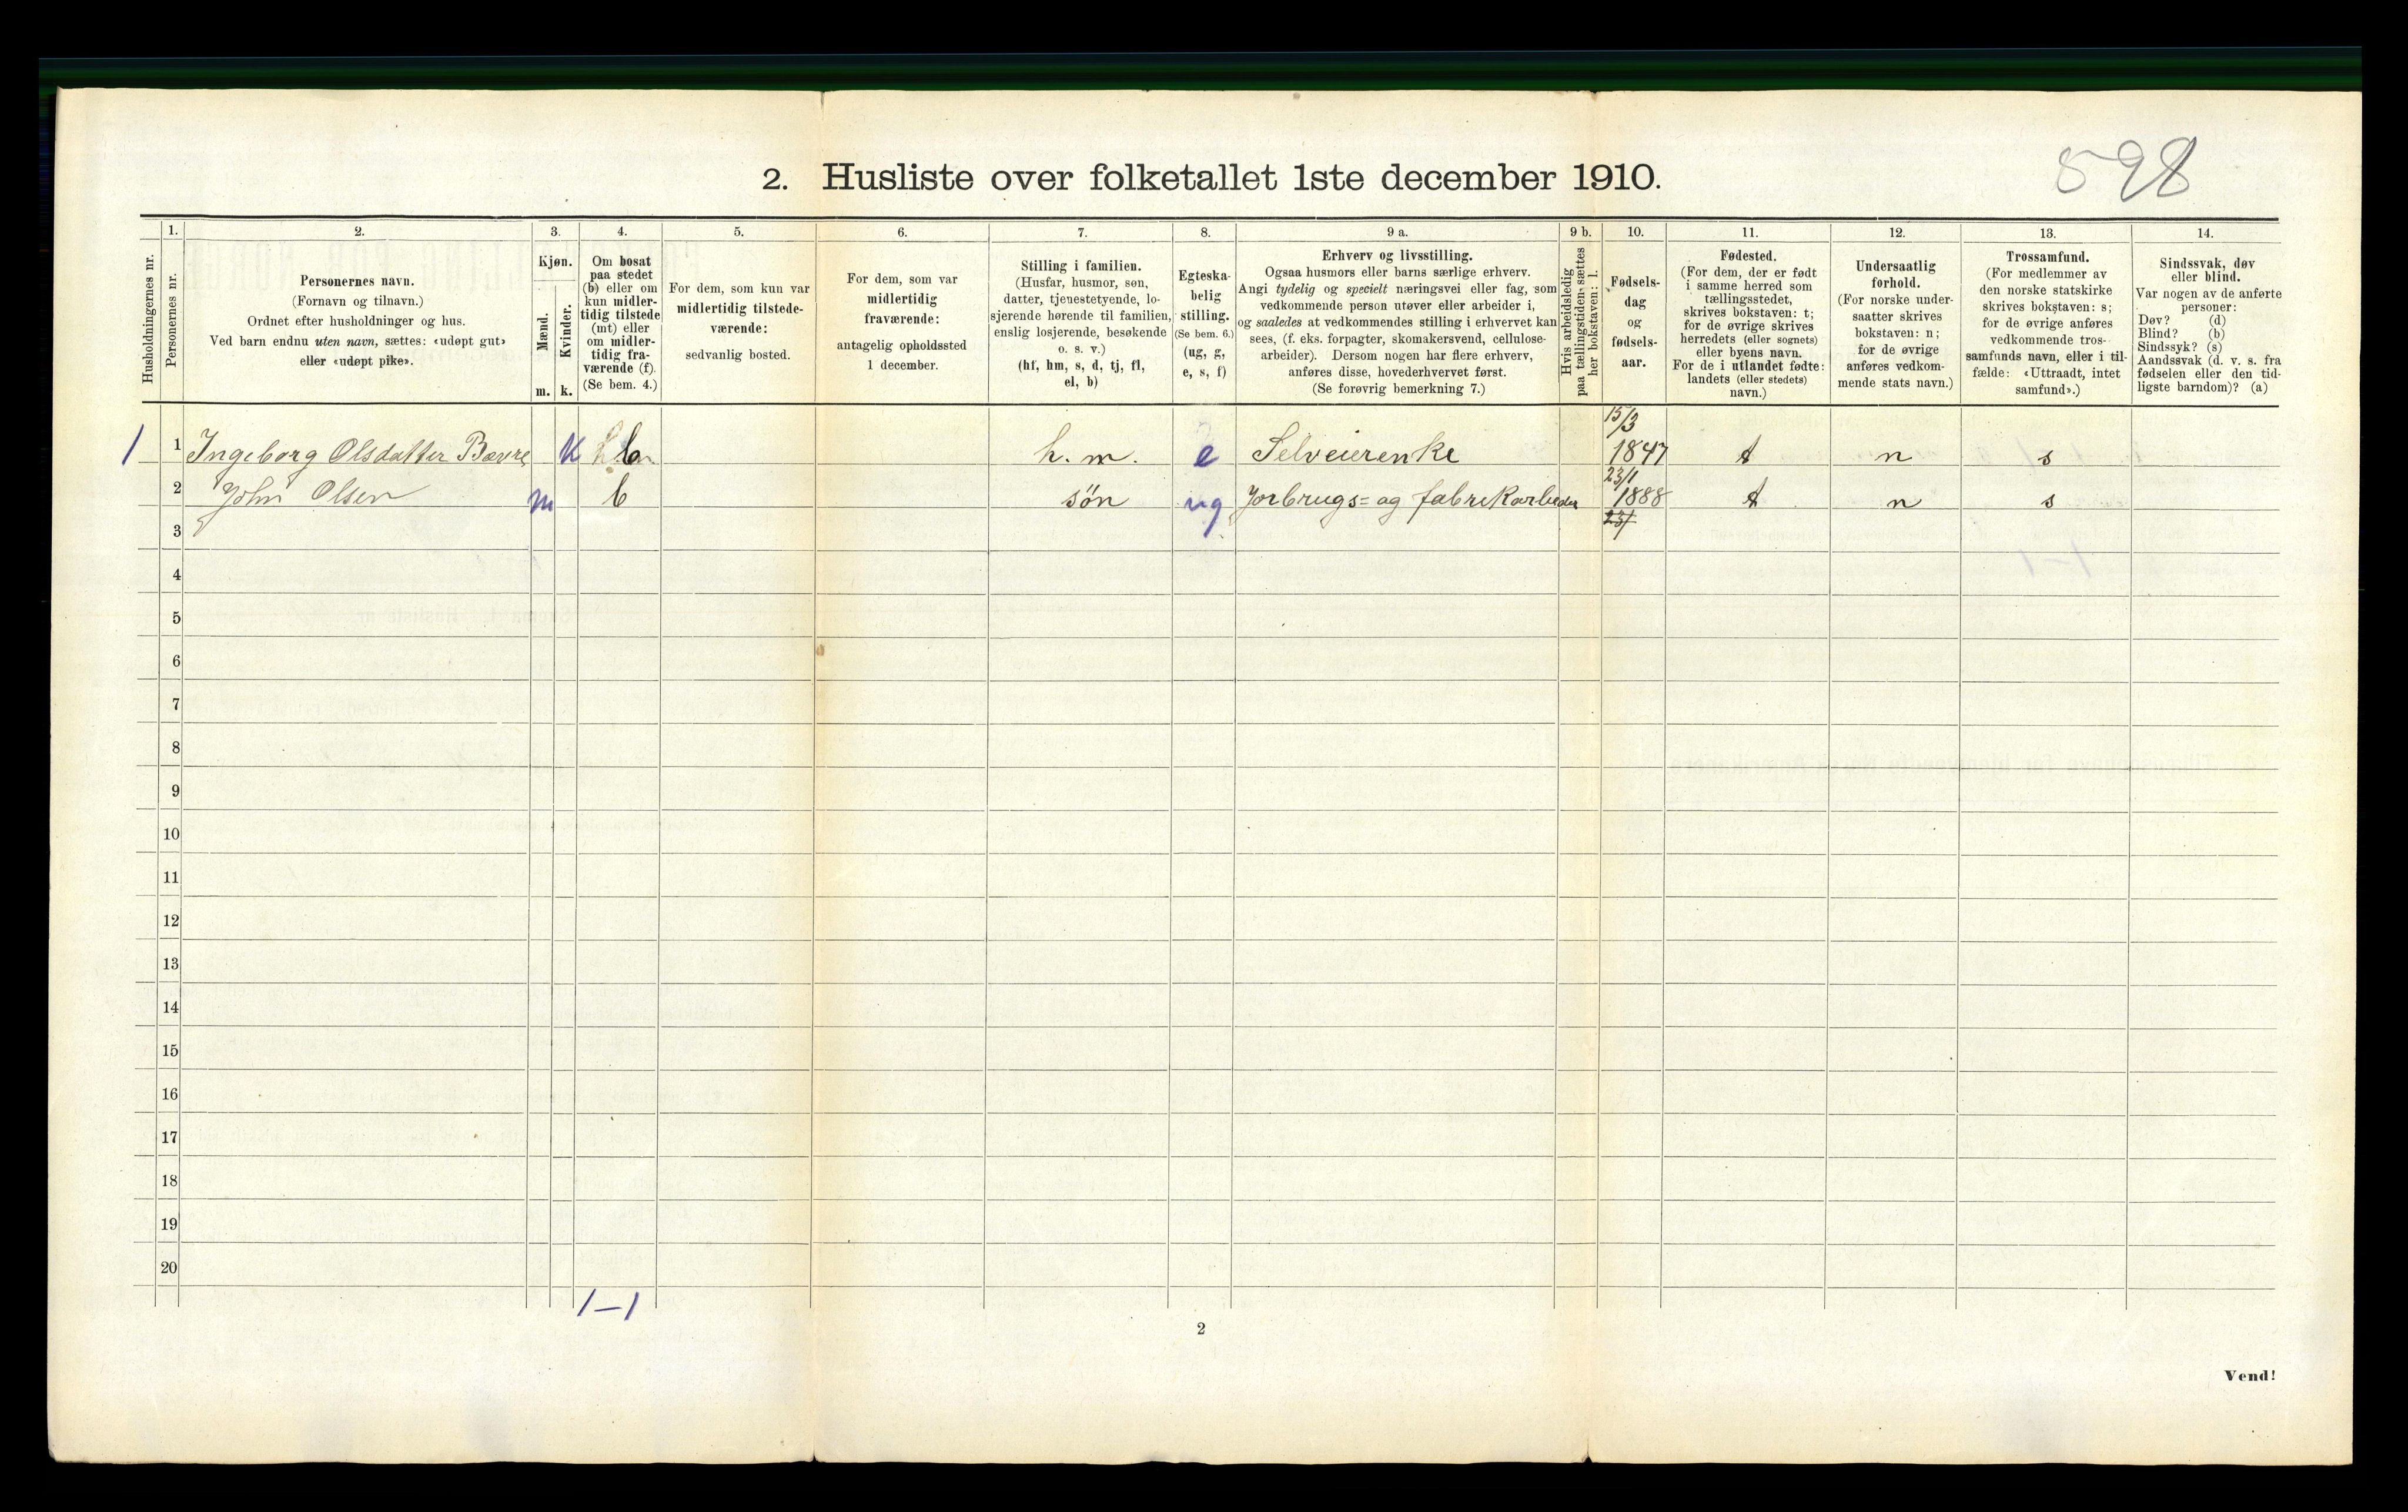 598
2. Husliste over folketallet 1ste december 1910.
Husholdningernes nr.
1.
Personernes nr.
2.
Personernes navn.
(Fornavn og tilnavn.)
Ordnet efter husholdninger og hus.
Ved barn endnu uten navn, sættes: «udøpt gut»
eller «udøpt pike».
3.
Kjøn.
Mænd.
m.
Kvinder.
k.
4.
Om bosat
paa stedet
(b) eller om
kun midler-
tidig tilstede
(mt) eller
om midler-
tidig fra-
værende (f).
(Se bem. 4.)
5.
For dem, som kun var
midlertidig tilstede-
værende:
sedvanlig bosted.
6.
For dem, som var
midlertidig
fraværende:
antagelig opholdssted
1 december.
7.
Stilling i familien.
(Husfar, husmor, søn,
datter, tjenestetyende, lo-
sjerende hørende til familien,
enslig losjerende, besøkende
o. s. v.)
(hf, hm, s, d, tj, fl,
el, b)
8.
Egteska-
belig
stilling.
(Se bem. 6.)
(ug, g,
e, s, f)
9 a.
Erhverv og livsstilling.
Ogsaa husmors eller barns særlige erhverv.
Angi tydelig og specielt næringsvei eller fag, som
vedkommende person utøver eller arbeider i,
og saaledes at vedkommendes stilling i erhvervet kan
sees, (f. eks. forpagter, skomakersvend, cellulose-
arbeider). Dersom nogen har flere erhverv,
anføres disse, hovederhvervet først.
(Se forøvrig bemerkning 7.)
9 b.
Hvis arbeidsledig
paa tællingstiden sættes
her bokstaven: l.
10.
Fødsels-
dag
og
fødsels-
aar.
11.
Fødested.
(For dem, der er født
i samme herred som
tællingsstedet,
skrives bokstaven: t;
for de øvrige skrives
herredets (eller sognets)
eller byens navn.
For de i utlandet fødte:
landets (eller stedets)
navn.)
12.
Undersaatlig
forhold.
(For norske under-
saatter skrives
bokstaven: n;
for de øvrige
anføres vedkom-
mende stats navn.)
13.
Trossamfund.
(For medlemmer av
den norske statskirke
skrives bokstaven: s;
for de øvrige anføres
vedkommende tros-
samfunds navn, eller i til-
fælde: «Uttraadt, intet
samfund».)
14.
Sindssvak, døv
eller blind.
Var nogen av de anførte
personer:
Døv? (d)
Blind? (b)
Sindssyk? (s)
Aandssvak (d. v. s. fra
fødselen eller den tid-
ligste barndom)? (a)
1 1 Ingeborg Olsdatter Bævre K b h. m. e Selveierenke 15/3 1847 t n s
2 John Olsen m b søn ug Jorbrugs= og fabrikarbeider 23/1 1888 t n s
3 23/
4
5
6
7
8
9
10
11
12
13
14
15
16
17
18
19
20
1—1
2
Vend!